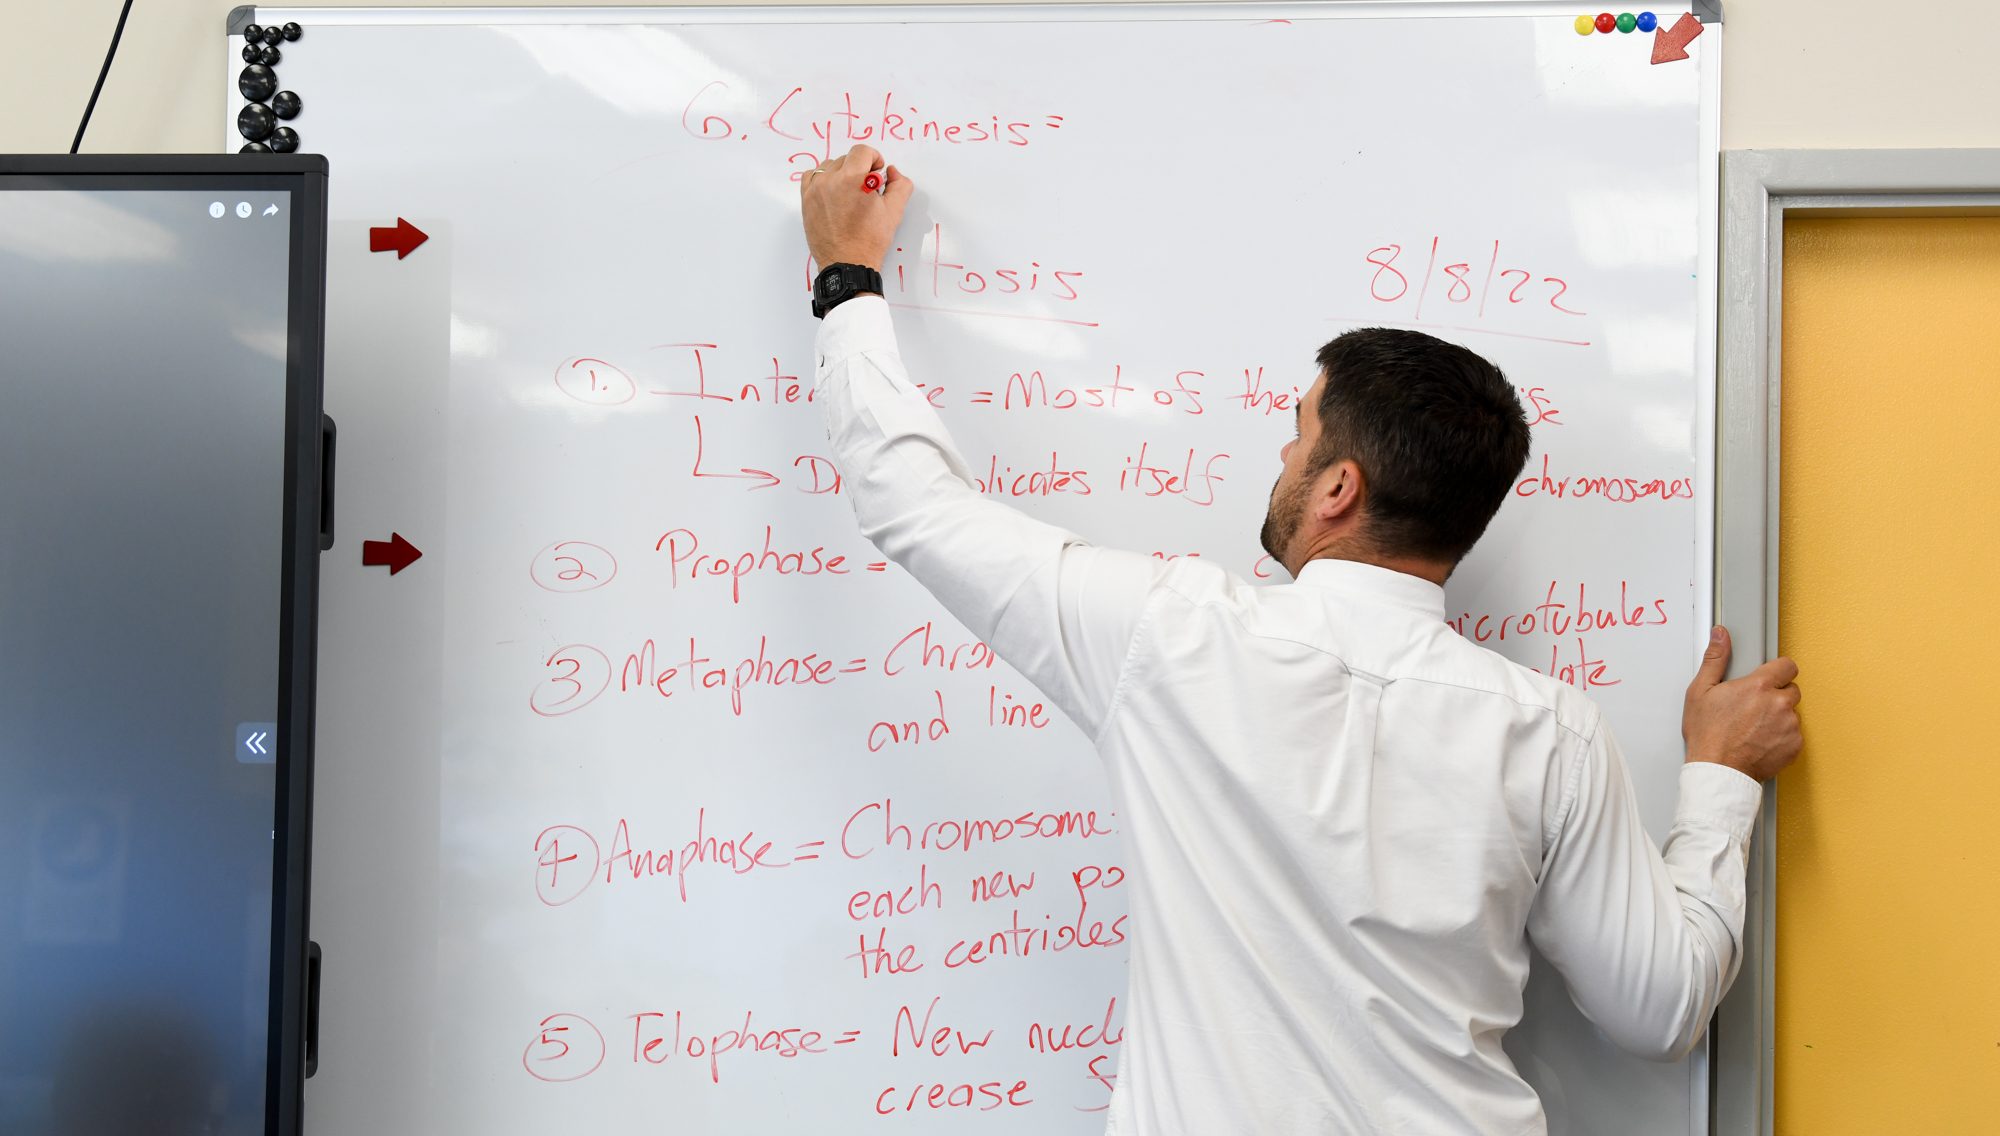 6. Cytokinesis =
2
itosis 8/8/22
1. Inter e = Most of thei ife
D licates itself chromosomes
2 Prophase =
icrotubules
3 Metaphase = Chro late
and line
4 Anaphase = Chromosome
each new po
the centrioles
5 Telophase = New nucl
crease f